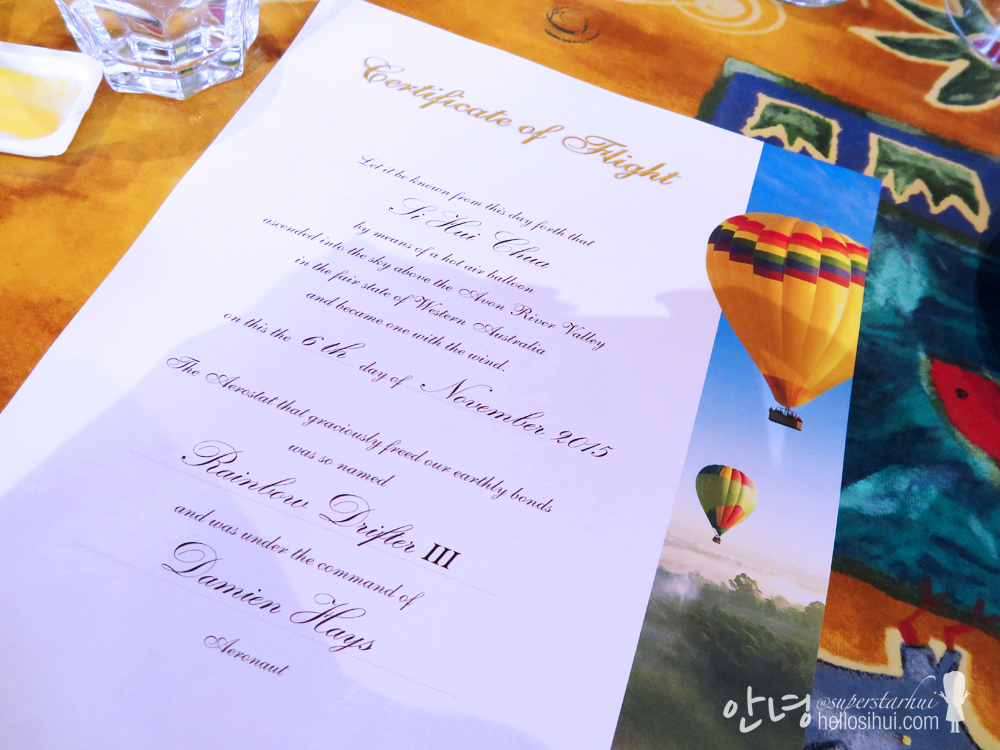 Certificate of Flight
Let it be known from this day forth that
Si Hui Chua
by means of a hot air balloon
ascended into the sky above the Avon River Valley
in the fair state of Western Australia
and became one with the wind.
on this the 6th day of November 2015
The Aerostat that graciously freed our earthly bonds
was so named
Rainbow Drifter III
and was under the command of
Damien Hays
Aeronaut
안녕 @superstarhui
hellosihui.com